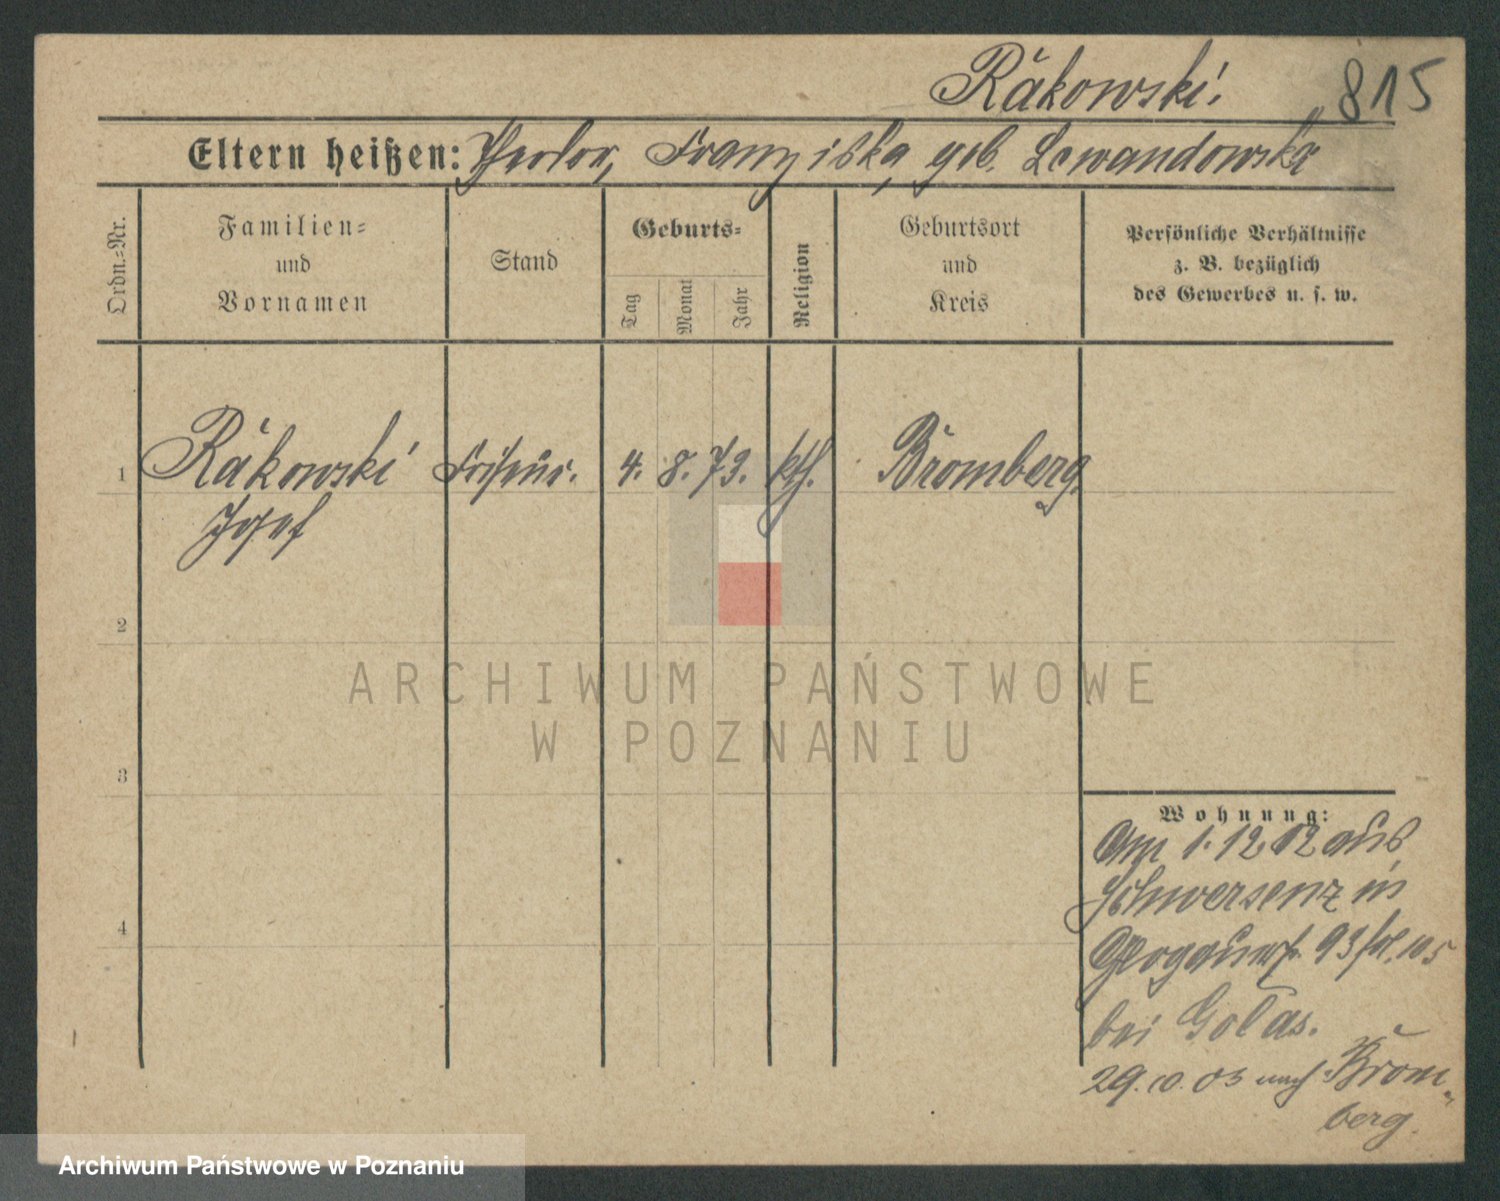 Räkowski.
815
Eltern heißen: Theodor, Franziska, geb. Lewandowska
Ordn.=Nr.
Familien=
und
Vornamen
Stand
Geburts=
Tag
Monat
Jahr
Religion
Geburtsort
und
Kreis
Persönliche Verhältnisse
z. B. bezüglich
des Gewerbes u. s. w.
1 Räkowski Friseur. 4. 8. 79. kth. Bromberg.
Josef
2
3
4
Wohnung:
Am 1. 12 02 aus
Schwersenz in
93 105
bei Golas.
29. 10. 03 nach Brom-
berg.
ARCHIWUM PAŃSTWOWE
W POZNANIU
Archiwum Państwowe w Poznaniu